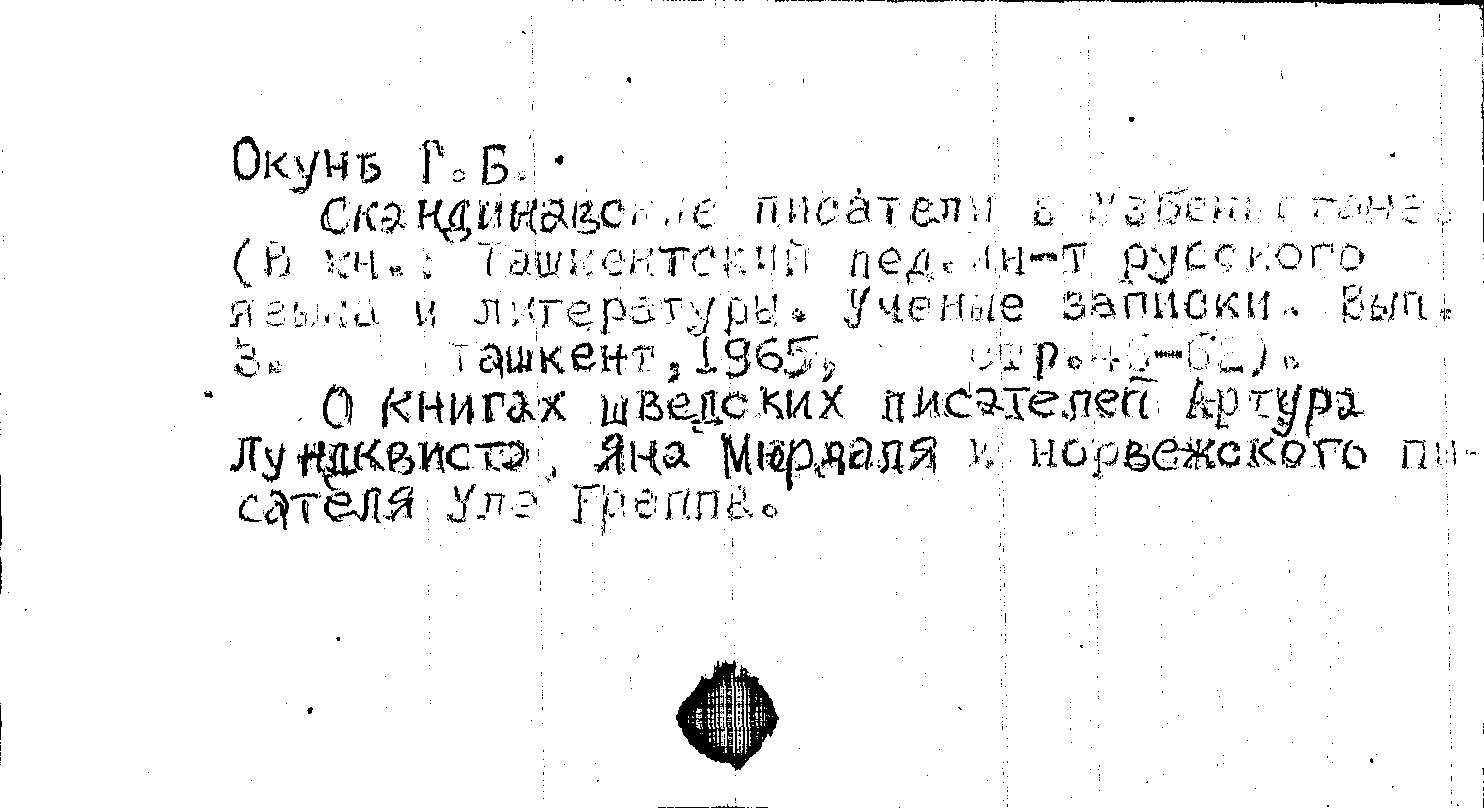 Окунь Г.Б.
Скандинавские писатели в Узбекистане.
(В кн.: Ташкентский пед.ин-т русского
языка и литературы. Ученые записки. Вып.
3. Ташкент,1965, стр.45-62).
О книгах шведских писателей Артура
Лундквиста, Яна Мюрдаля и норвежского пи-
сателя Улэ Граппа.